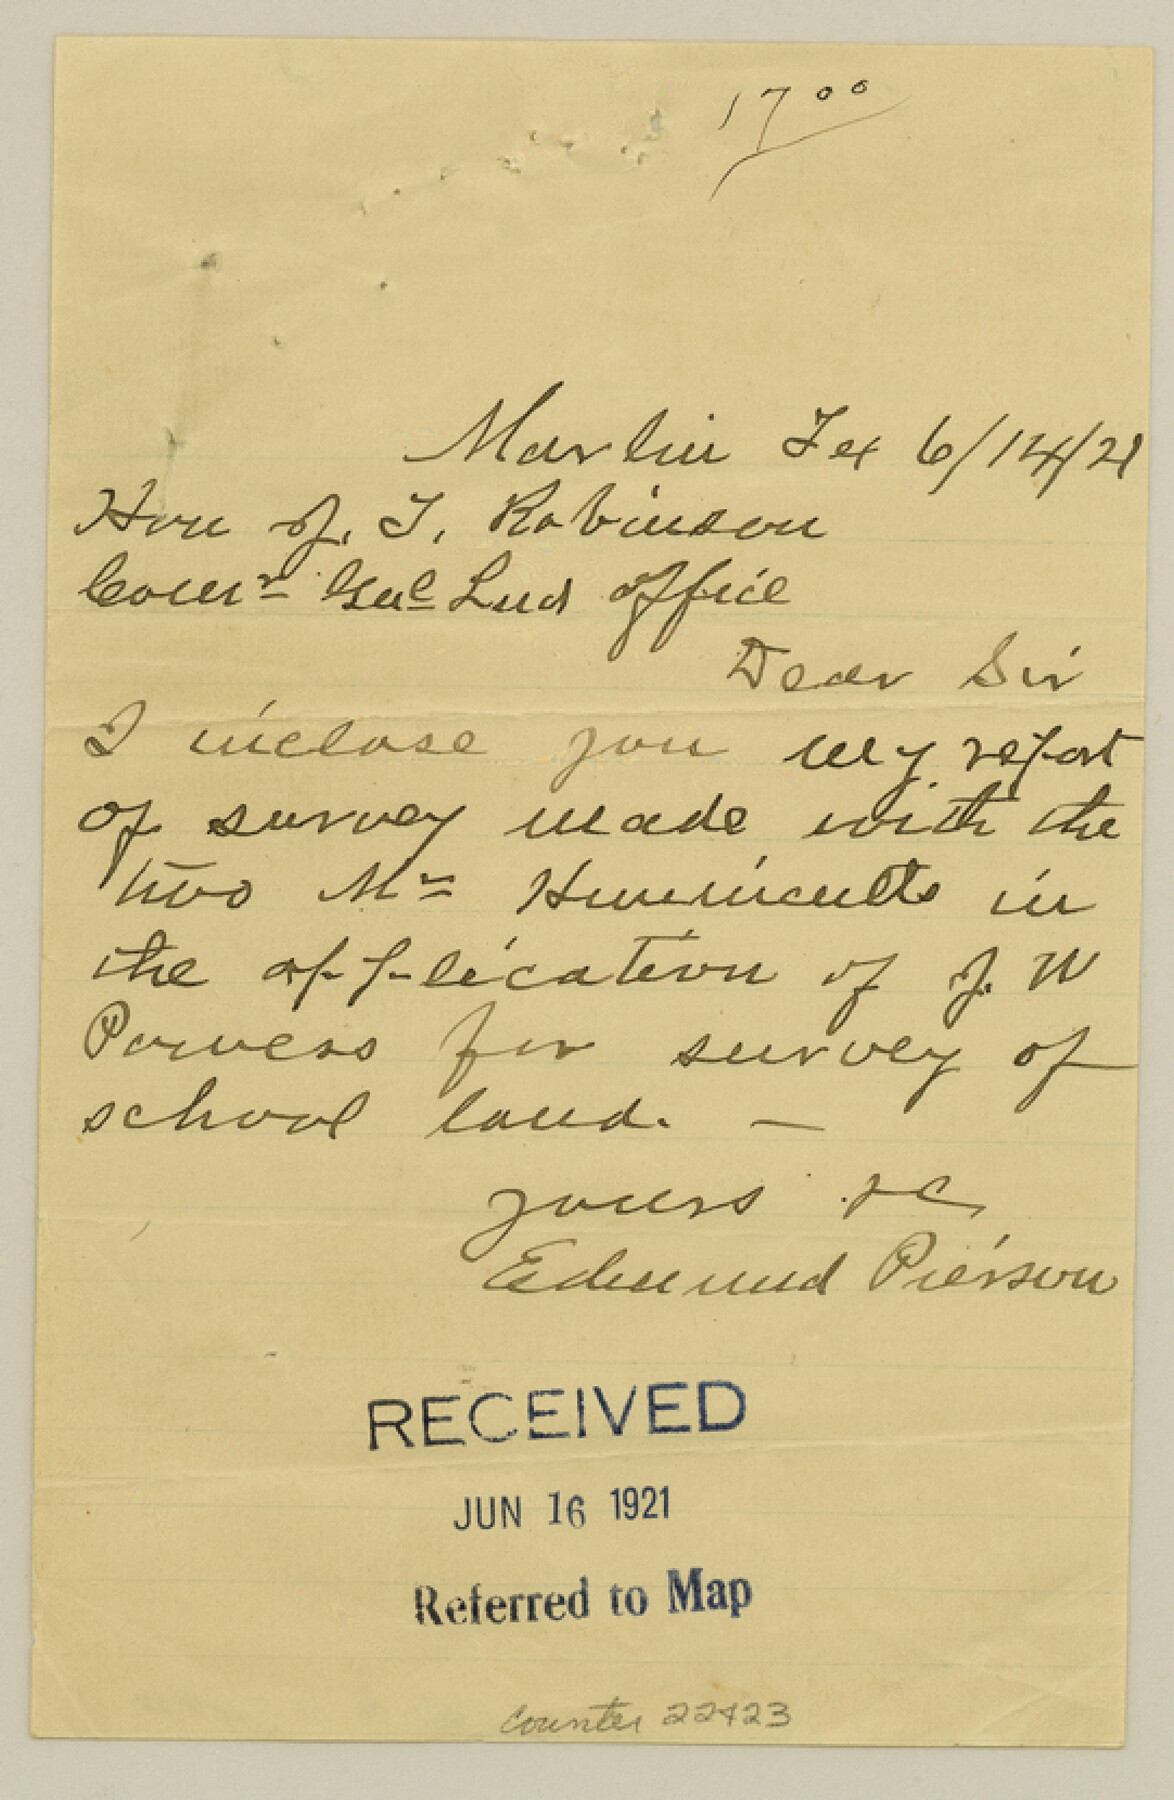 17 00
Marlin Tex 6/14/21
Hon J. T. Robinson
Comr Genl Land office
Dear Sir
I inclose you my report
of survey made with the
two Mr in
the application of J. W
Powers for survey of
school land. —
yours &c
Edmund Pierson
RECEIVED
JUN 16 1921
Referred to Map
Counter 22423